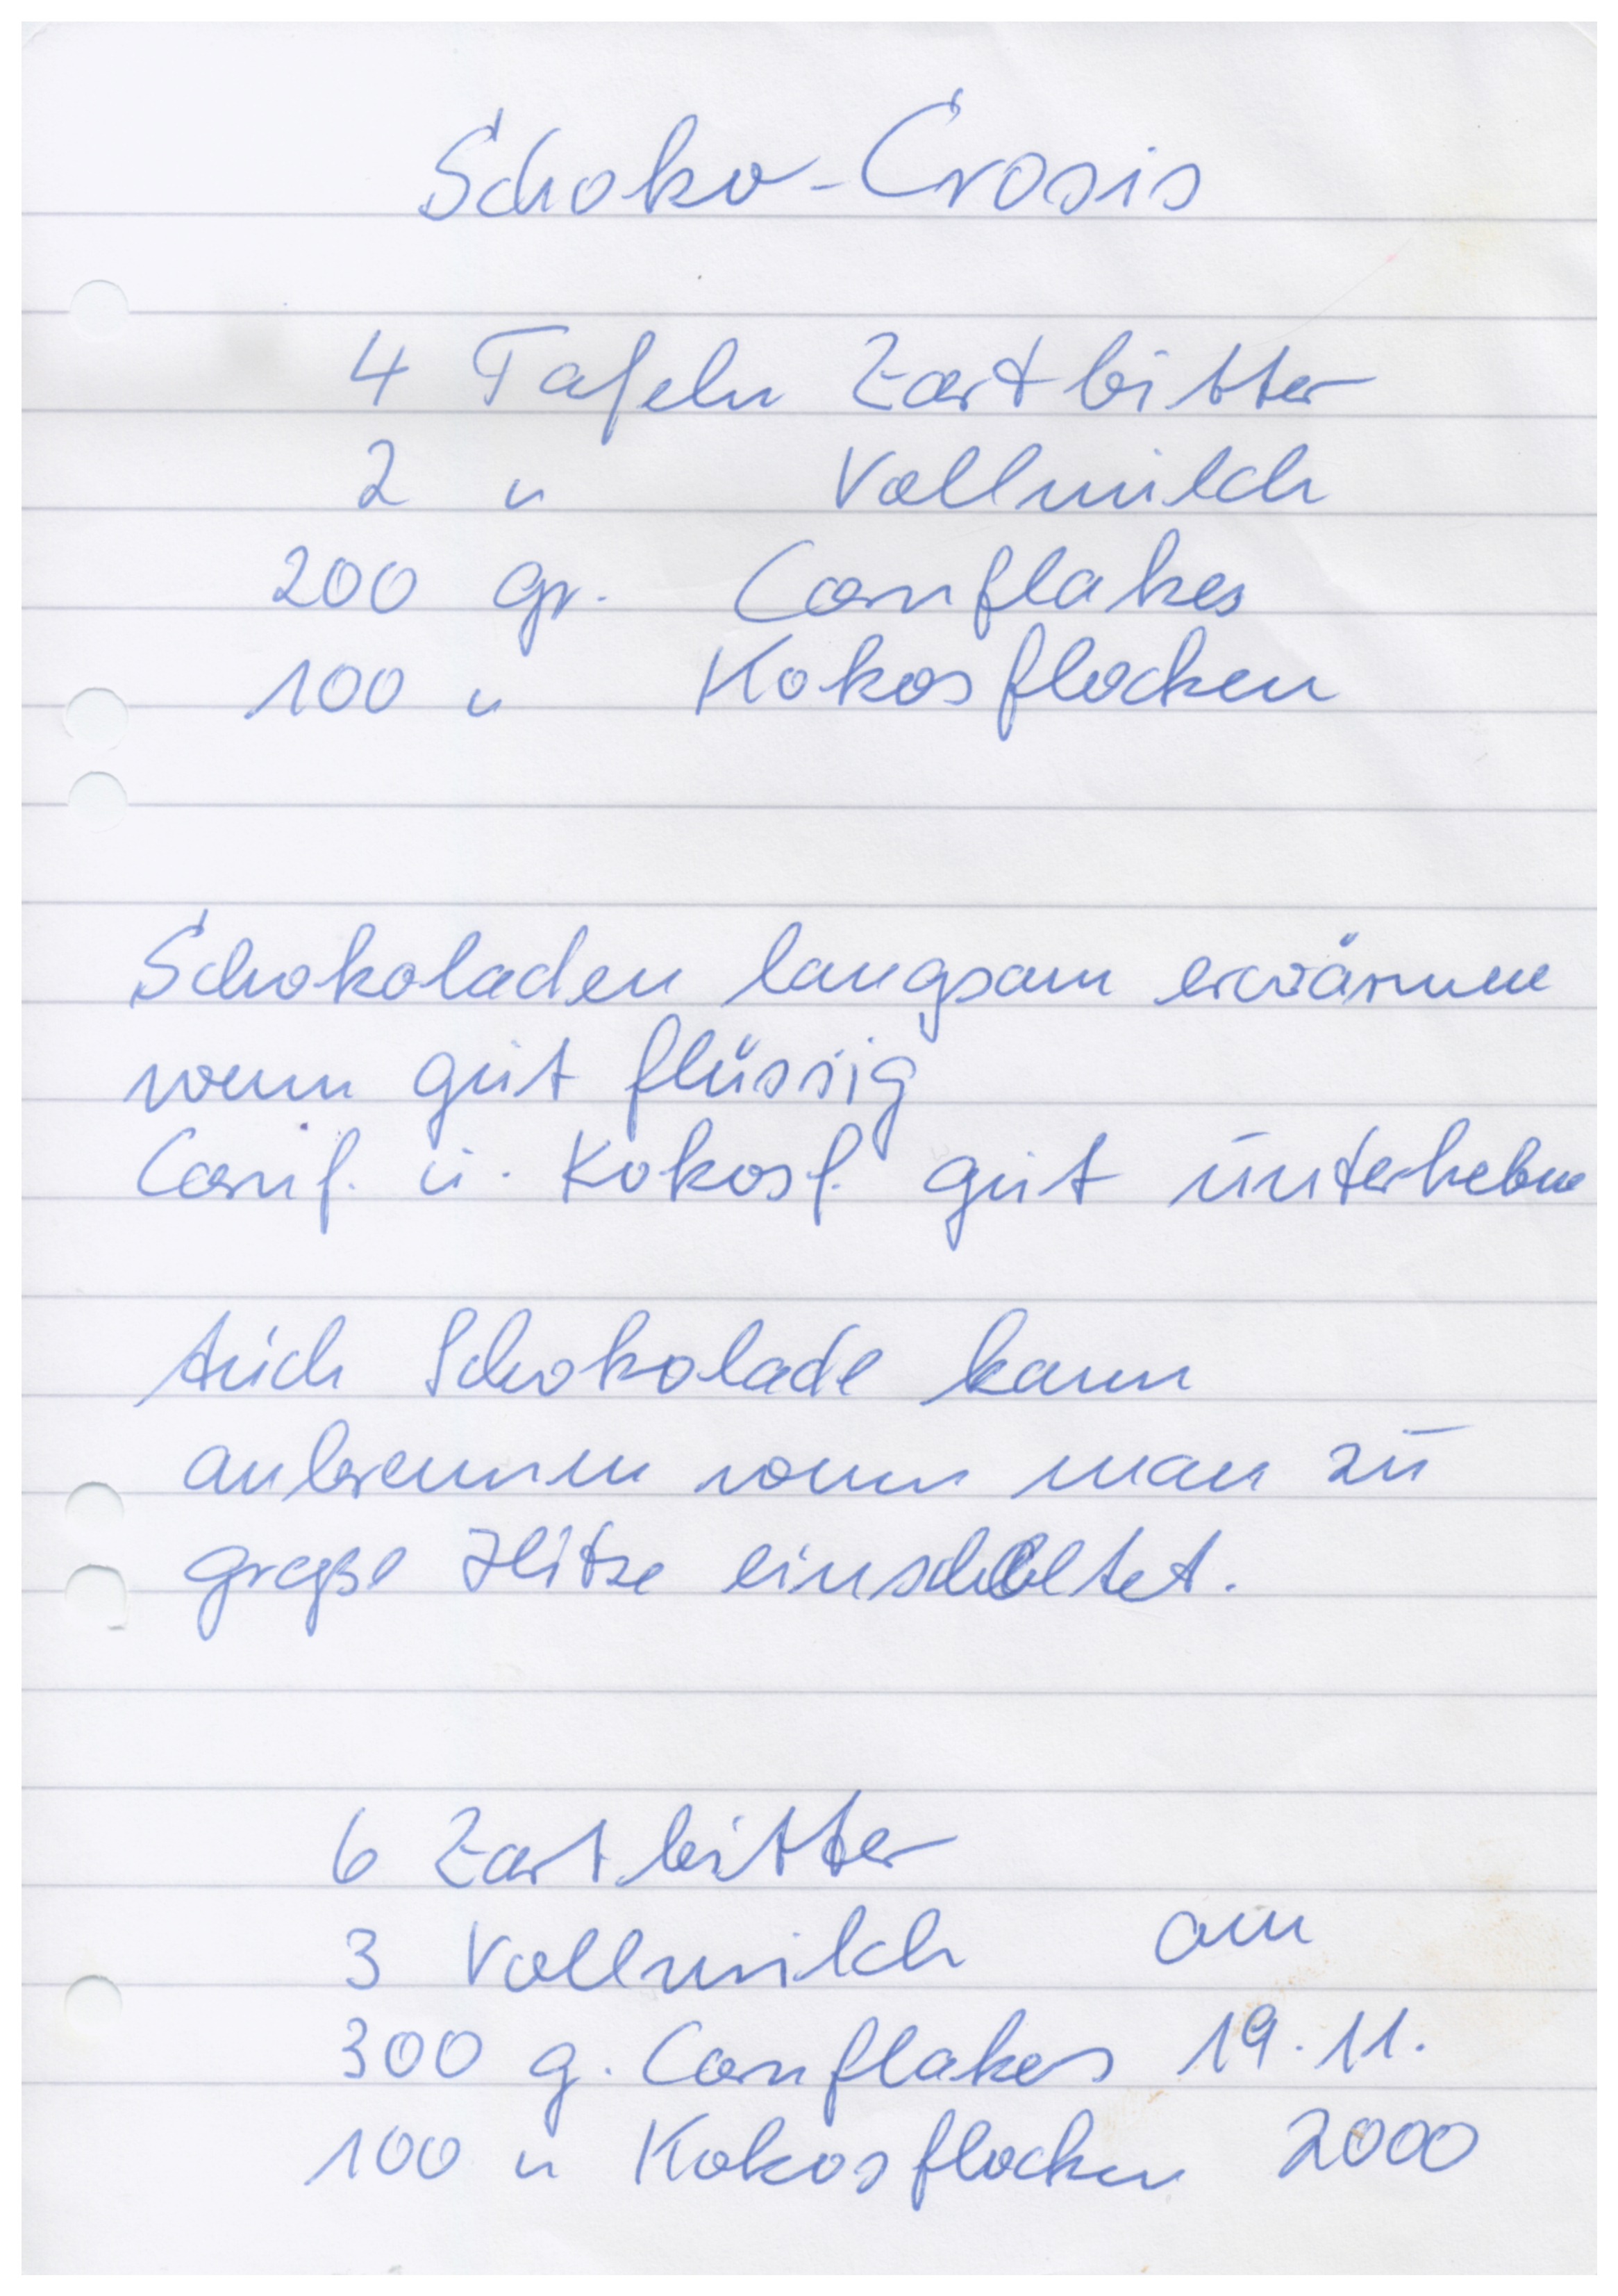 Schoko-Crosis
4 Tafeln Zartbitter
2 " Vollmilch
200 gr. Cornflakes
100 " Kokosflocken
Schokoladen langsam erwärmen
wenn gut flüssig
Cornf. u. Kokosf. gut unterheben
Auch Schokolade kann
anbrennen wenn man zu
große Hitze einschaltet.
6 Zartbitter
3 Vollmilch am
300 g. Cornflakes 19.11.
100 " Kokosflocken 2000